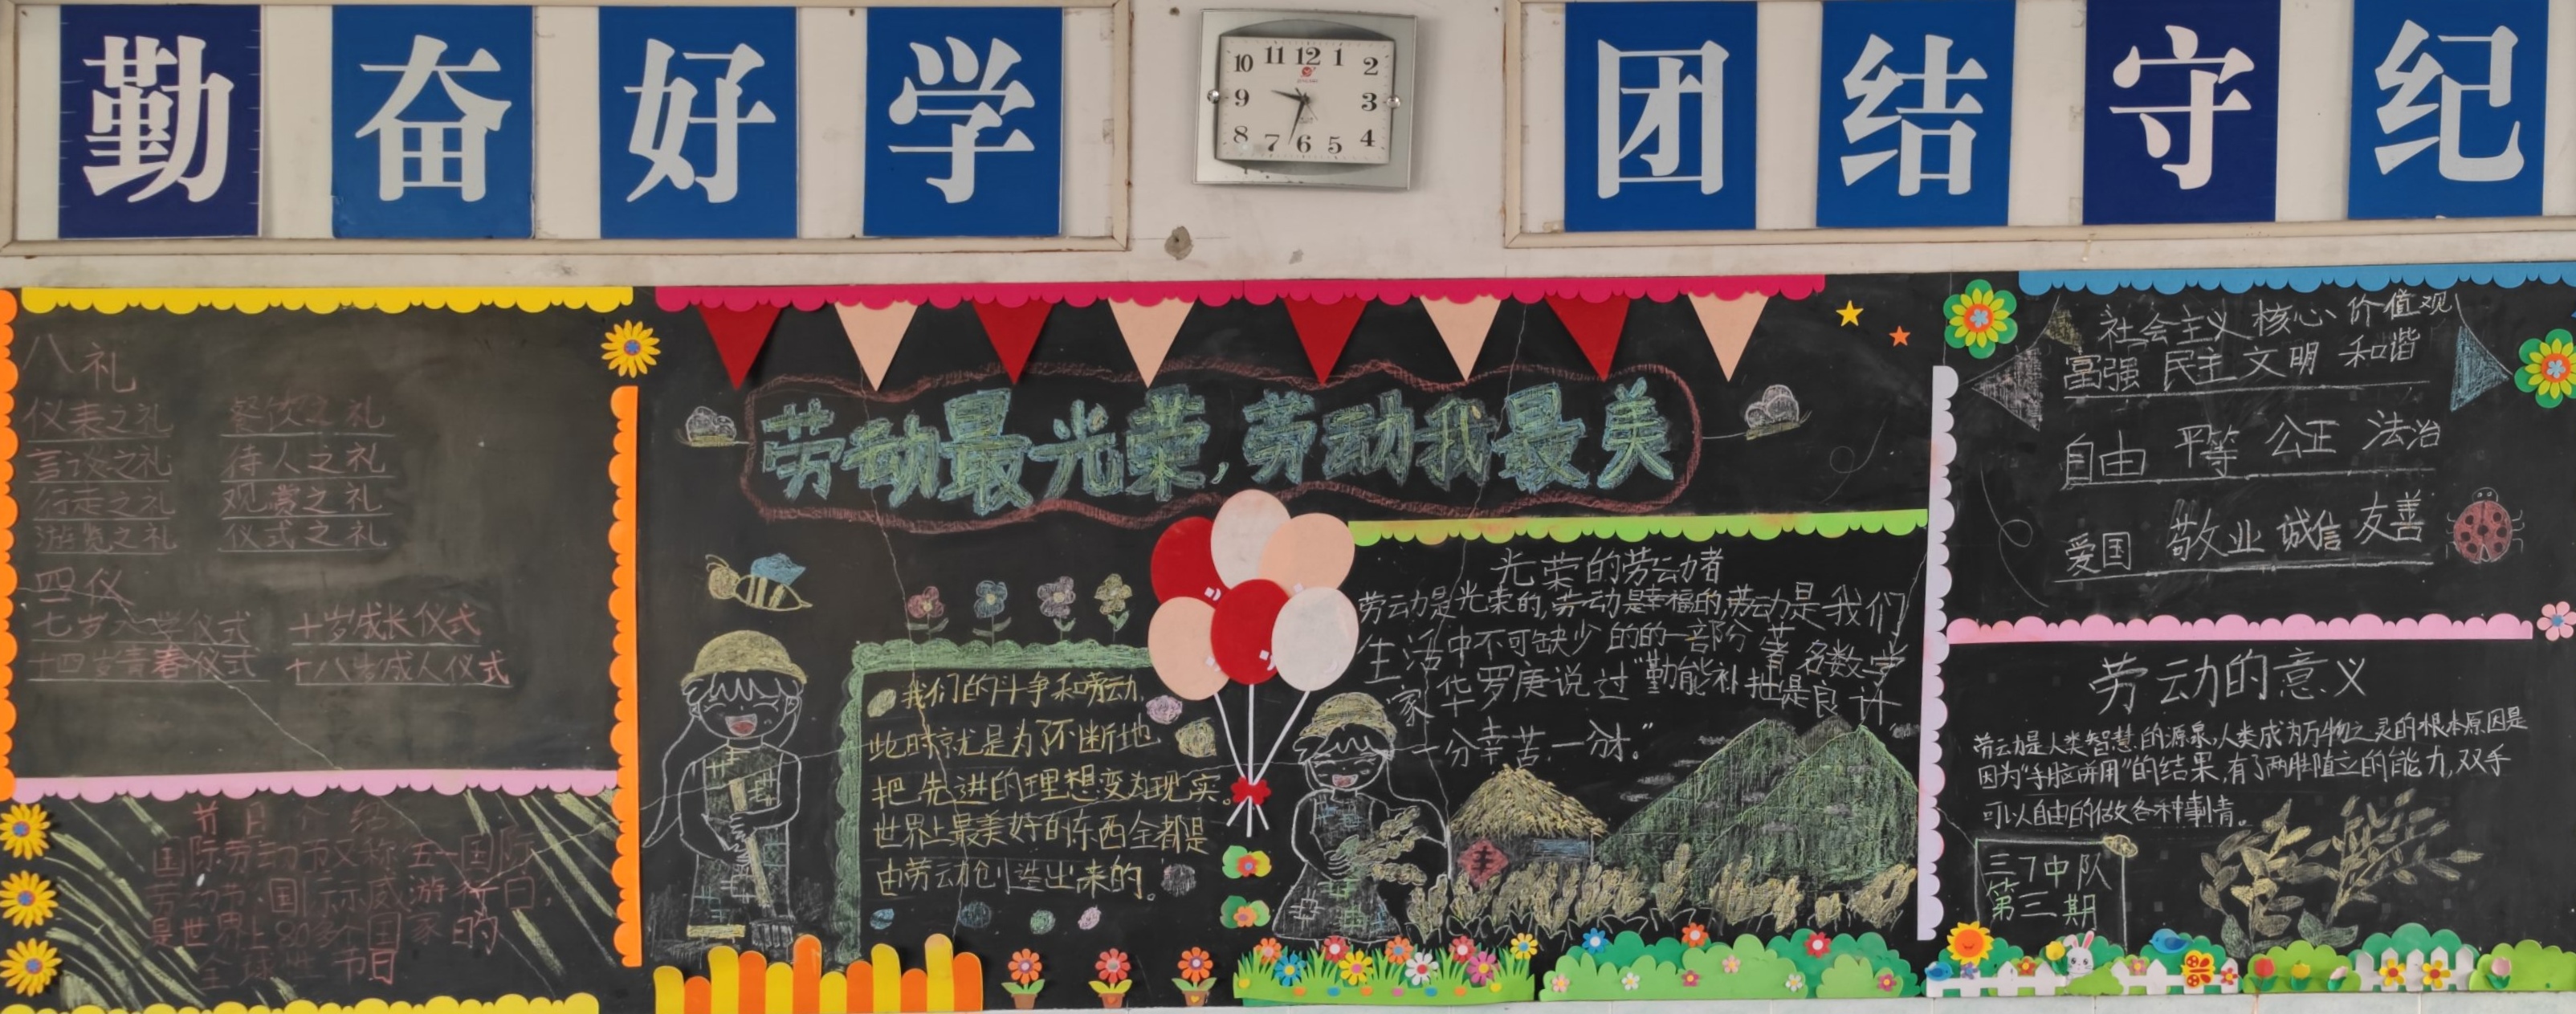 勤奋好学
团结守纪
10 11 12 1 2
9 3
8 7 6 5 4
八礼
仪表之礼 餐饮之礼
言谈之礼 待人之礼
行走之礼 观赏之礼
游览之礼 仪式之礼
四仪
七岁入学仪式 十岁成长仪式
十四岁青春仪式 十八岁成人仪式
节日介绍
国际劳动节又称五一国际
劳动节、国际示威游行日,
是世界上80多个国家的
全球性节日
劳动最光荣,劳动我最美
我们的斗争和劳动,
此时就是为了不断地
把先进的理想变为现实。
世界上最美好的东西全都是
由劳动创造出来的。
光荣的劳动者
劳动是光荣的,劳动是幸福的,劳动是我们
生活中不可缺少的的一部分 著名数学
家华罗庚说过“勤能补拙是良计
一分幸苦一分才。”
丰
社会主义核心价值观
富强 民主 文明 和谐
自由 平等 公正 法治
爱国 敬业 诚信 友善
劳动的意义
劳动是人类智慧的源泉,人类成为万物之灵的根本原因是
因为“手脑并用”的结果,有了两脚直立的能力,双手
可以自由的做各种事情。
三7中队
第三期